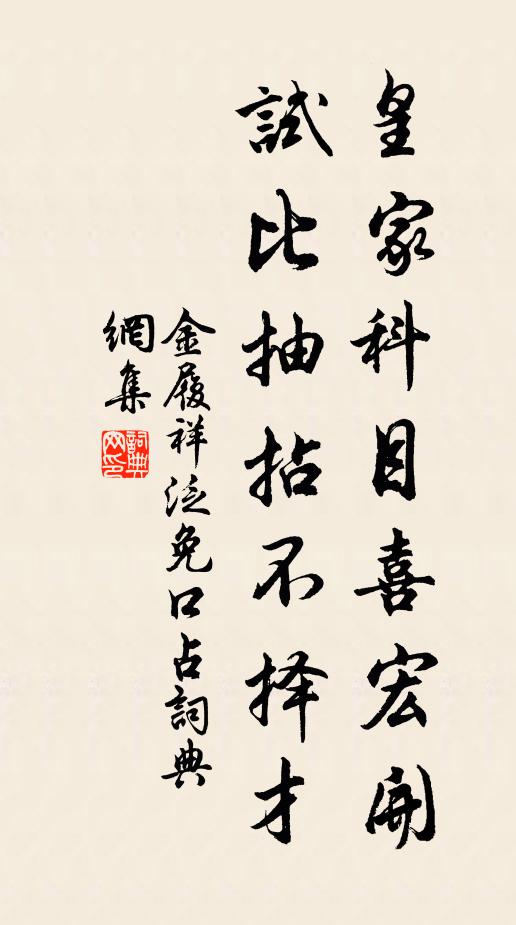 皇家科目喜宏開
試比抽拈不择才
金履祥泛兔口占詞典
網集
詞典
网印